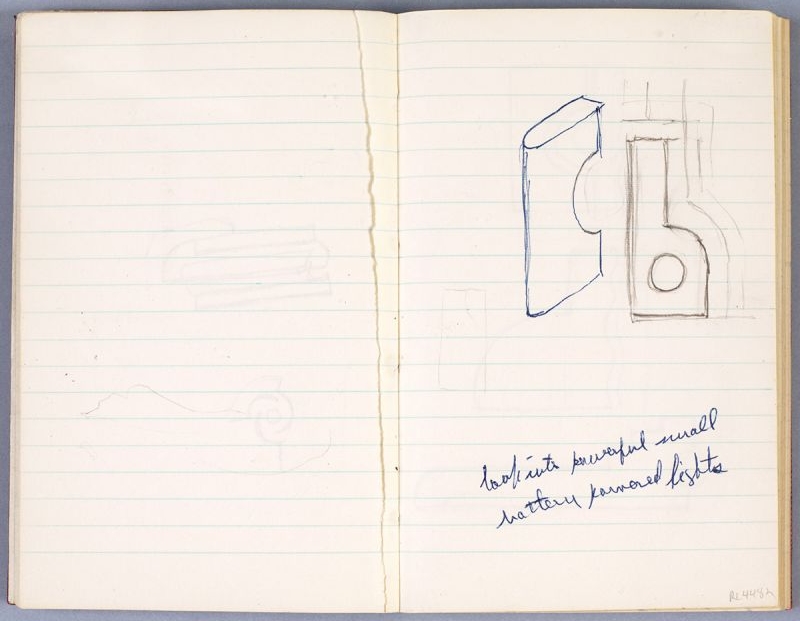 look into powerful small
battery powered lights